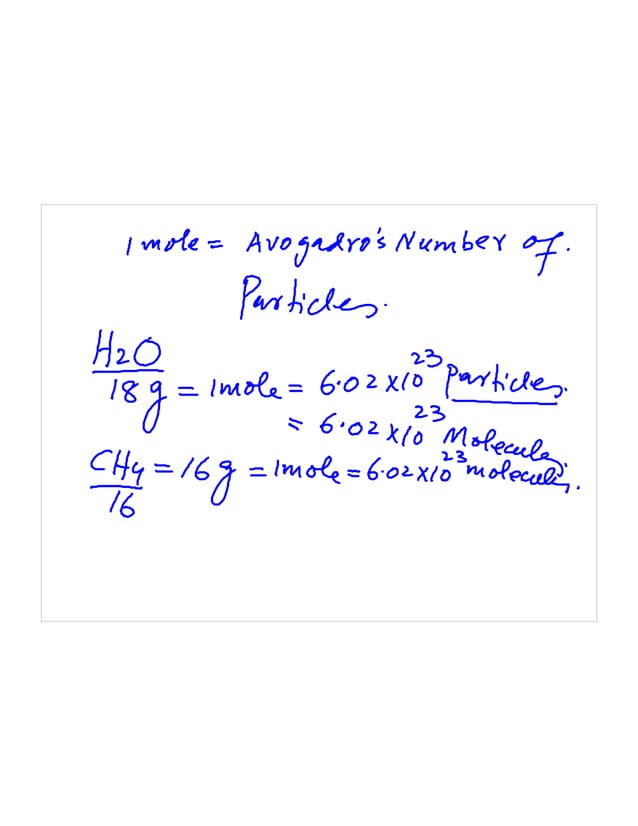 1 mole = Avogadro's Number of.
Particles.
H2O
18g = 1mole = 6.02 x10 23 Particles.
= 6.02 x10 23 Molecules
CH4 = 16g = 1mole = 6.02x10 23 molecules.
16